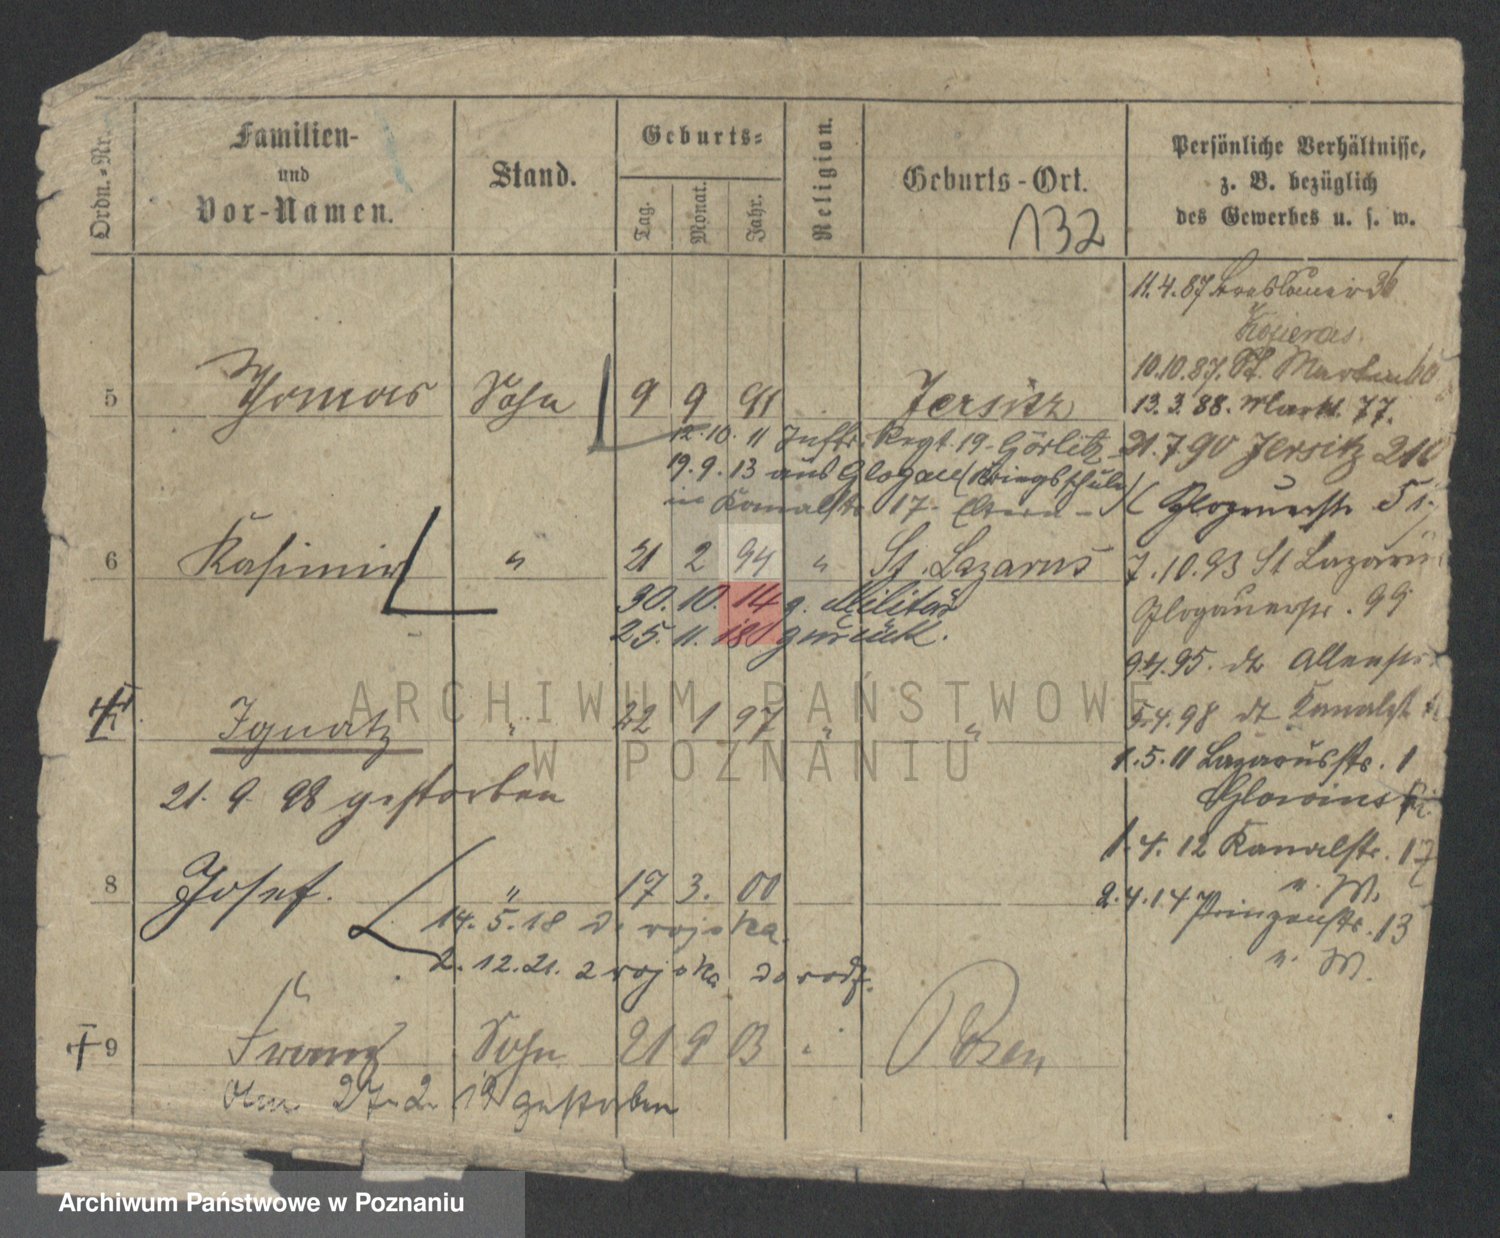 Ordn.-Nr.
Familien-
und
Vor-Namen.
Stand.
Geburts-
Tag.
Monat.
Jahr.
Religion.
Geburts-Ort.
132
Persönliche Verhältnisse,
z. B. bezüglich
des Gewerbes u. s. w.
11.4.87 Breslauer 36
10.10.87. St. Martin 60
5 Thomas Sohn 9 9 91 Jersitz
13.3.88. Markt 77.
12.10.11 Inftr. Regt. 19 Görlitz
21.7.90 Jersitz
19.9.13 aus Glogau (Kriegsschule)
in Kanalstr. 17. Eltern
Glogauerstr.
6 Kasimir " 21 2 94 " St. Lazarus
7.10.93 St Lazarus
30.10.14 z. Militär
Glogauerstr. 99
25.11.18 zurück.
95. dt
Ignatz " 22 1 97 " "
5.4.98 dt Kanalst
1.5.11 Lazarusstr. 1
21.9.98 gestorben
1.4.12 Kanalstr. 17
8 Josef. " 17 3. 00
u. W.
2.4.14 Prinzenstr. 13
u. W.
14.5.18 do wojska.
2.12.21. z wojska do rodz.
† 9 Franz Sohn 21 9 03 " Posen
Am 27.2.19 gestorben
ARCHIWUM PAŃSTWOWE
W POZNANIU
Archiwum Państwowe w Poznaniu